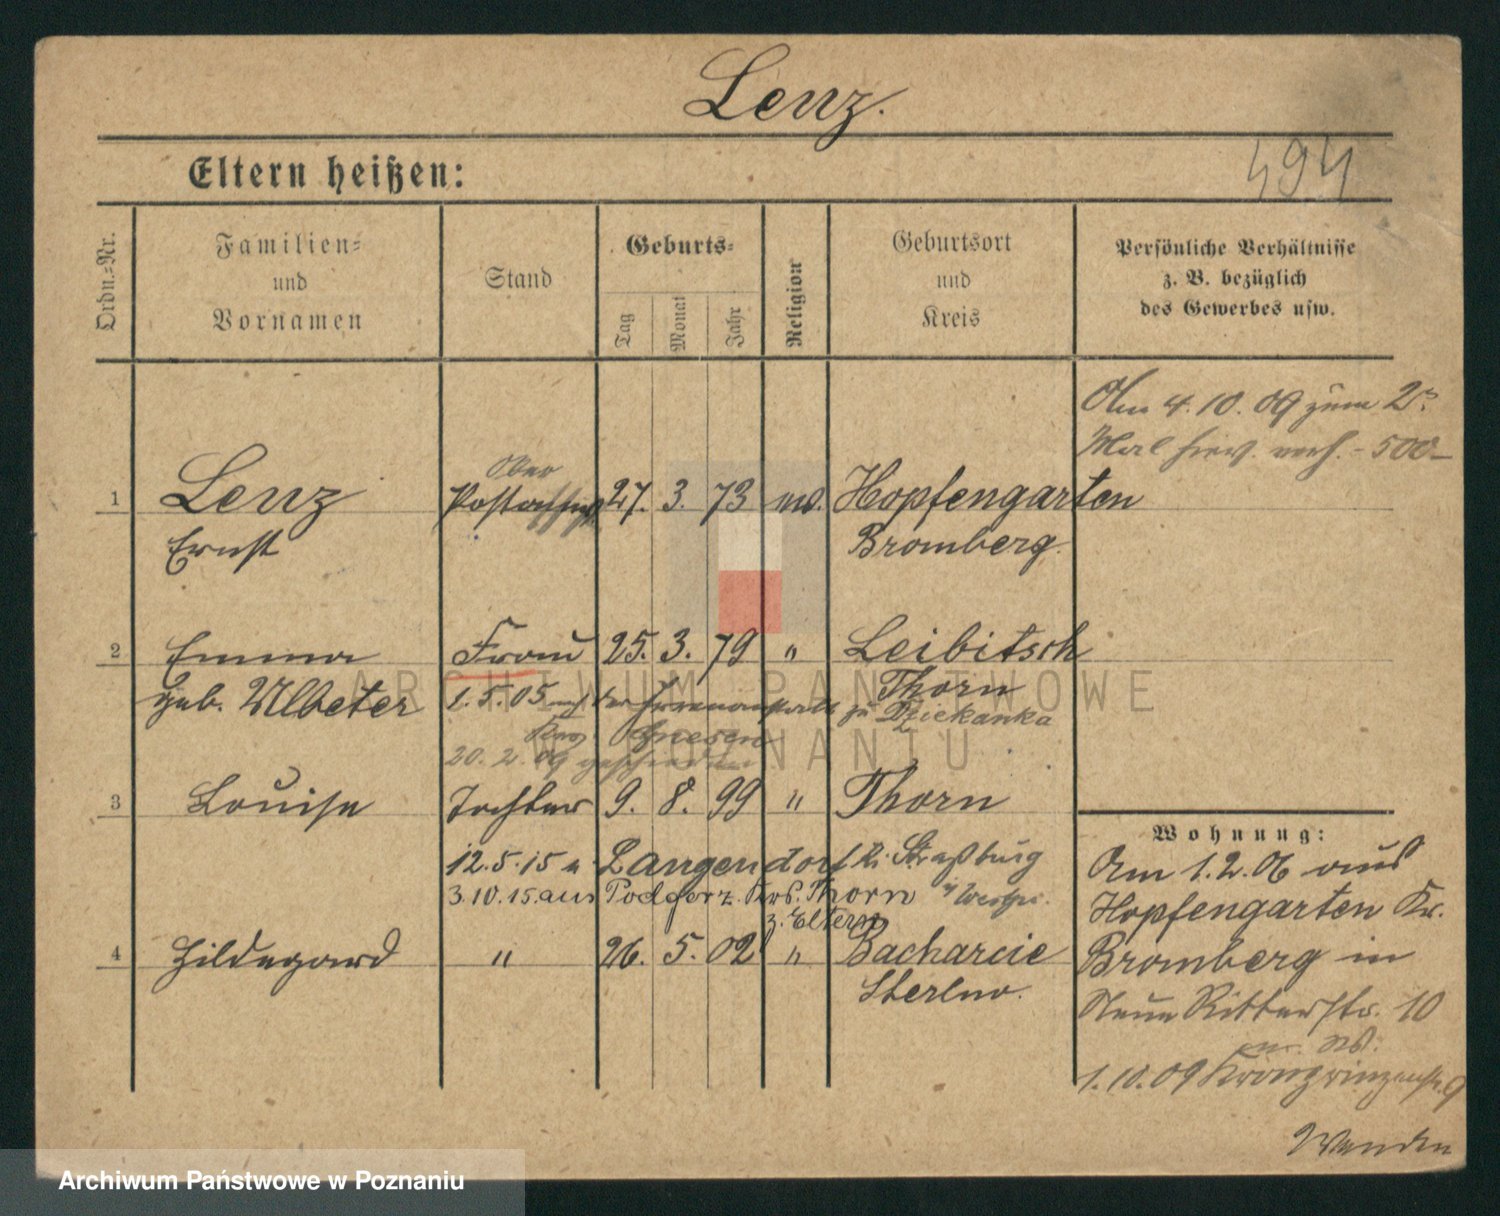 Lenz.
494
Eltern heißen:
Ordn.=Nr.
Familien=
und
Vornamen
Stand
Geburts=
Tag
Monat
Jahr
Religion
Geburtsort
und
Kreis
Persönliche Verhältnisse
z. B. bezüglich
des Gewerbes usw.
Am 4.10.09 zum 2.
Mal hier verh. - 500 -
Ober
1 Lenz Postassist 27. 3. 73 ev. Hopfengarten
Ernst Bromberg.
2 Emma Frau 25. 3. 79 " Leibitsch
geb. Ulbeter Thorn
1.5.05 der Irrenanstalt zu Dziekanka
Gnesen
20.2.09 geschieden
3 Louise Tochter 9. 8. 99 " Thorn
12.5.15 n Langendorf Kr. Straßburg
3.10.15. aus Podgorz Krs. Thorn i/ Westpr.
z. Eltern
4 Hildegard " 26. 5. 02 " Bacharcie
Sterlno.
Wohnung:
Am 1.2.06 aus
Hopfengarten Kr.
Bromberg in
Neue Ritterstr. 10
1.10.09 Kronprinzenstr. 9
Wenden
ARCHIWUM PAŃSTWOWE
W POZNANIU
Archiwum Państwowe w Poznaniu